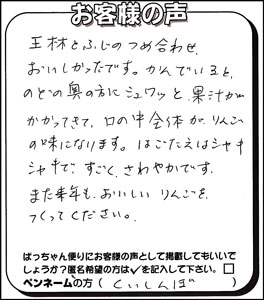 お客様の声
王林とふじのつめ合わせ
おいしかったです。かんでいると、
のどの奥の方にジュワッと、果汁が
かかってきて、口の中全体が、りんご
の味になります。はごたえはシャキ
シャキで、すごく、さわやかです。
また来年も、おいしいりんごを
つくってください。
ばっちゃん便りにお客様の声として掲載してもいいで
しょうか?匿名希望の方は✓を記入して下さい。□
ペンネームの方(くいしんぼ)